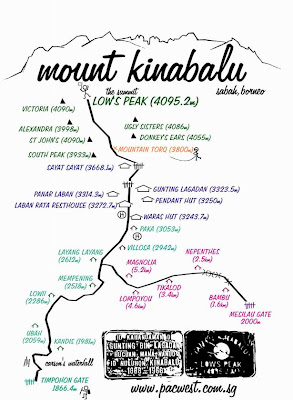 mount kinabalu
the summit
sabah, borneo
LOW'S PEAK (4095.2m)
VICTORIA (4090m)
ALEXANDRA (3998m)
UGLY SISTERS (4086m)
ST JOHN'S (4090m)
DONKEY'S EARS (4055m)
SOUTH PEAK (3933m)
MOUNTAIN TORQ (3800m)
SAYAT SAYAT (3668.1m)
PANAR LABAN (3314.3m)
GUNTING LAGADAN (3323.5m)
LABAN RATA RESTHOUSE (3272.7m)
PENDANT HUT (3250m)
WARAS HUT (3243.7m)
PAKA (3053m)
VILLOSA (2942m)
LAYANG LAYANG
(2612m)
NEPENTHES
(2.5m)
MAGNOLIA
(5.2m)
MEMPENING
(2518m)
LOWII
(2286m)
TIKALOD
(3.4m)
LOMPOYOU
(4.6m)
BAMBU
(1.6m)
MESILAU GATE
2000m
UBAH
(2059m)
KANDIS (1981m)
carson's waterfall
TIMPOHON GATE
1866.4m
GUNTING BIN LAGADAN
LOW'S PEAK
www.pacwest.com.sg